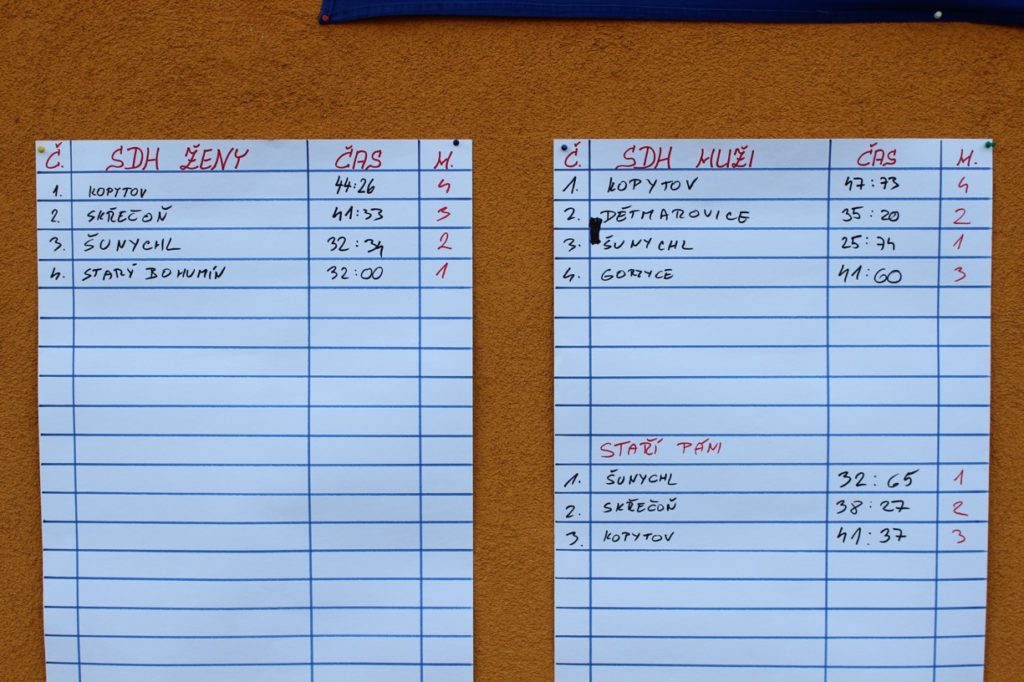 Č. SDH ŽENY ČAS M.
1. KOPYTOV 44:26 4
2. SKŘEČOŇ 41:33 3
3. ŠUNYCHL 32:34 2
4. STARÝ BOHUMÍN 32:00 1
Č. SDH MUŽI ČAS M.
1. KOPYTOV 47:73 4
2. DĚTMAROVICE 35:20 2
3. ŠUNYCHL 25:74 1
4. 41:60 3
STAŘÍ PÁNI
1. ŠUNYCHL 32:65 1
2. SKŘEČOŇ 38:27 2
3. KOPYTOV 41:37 3